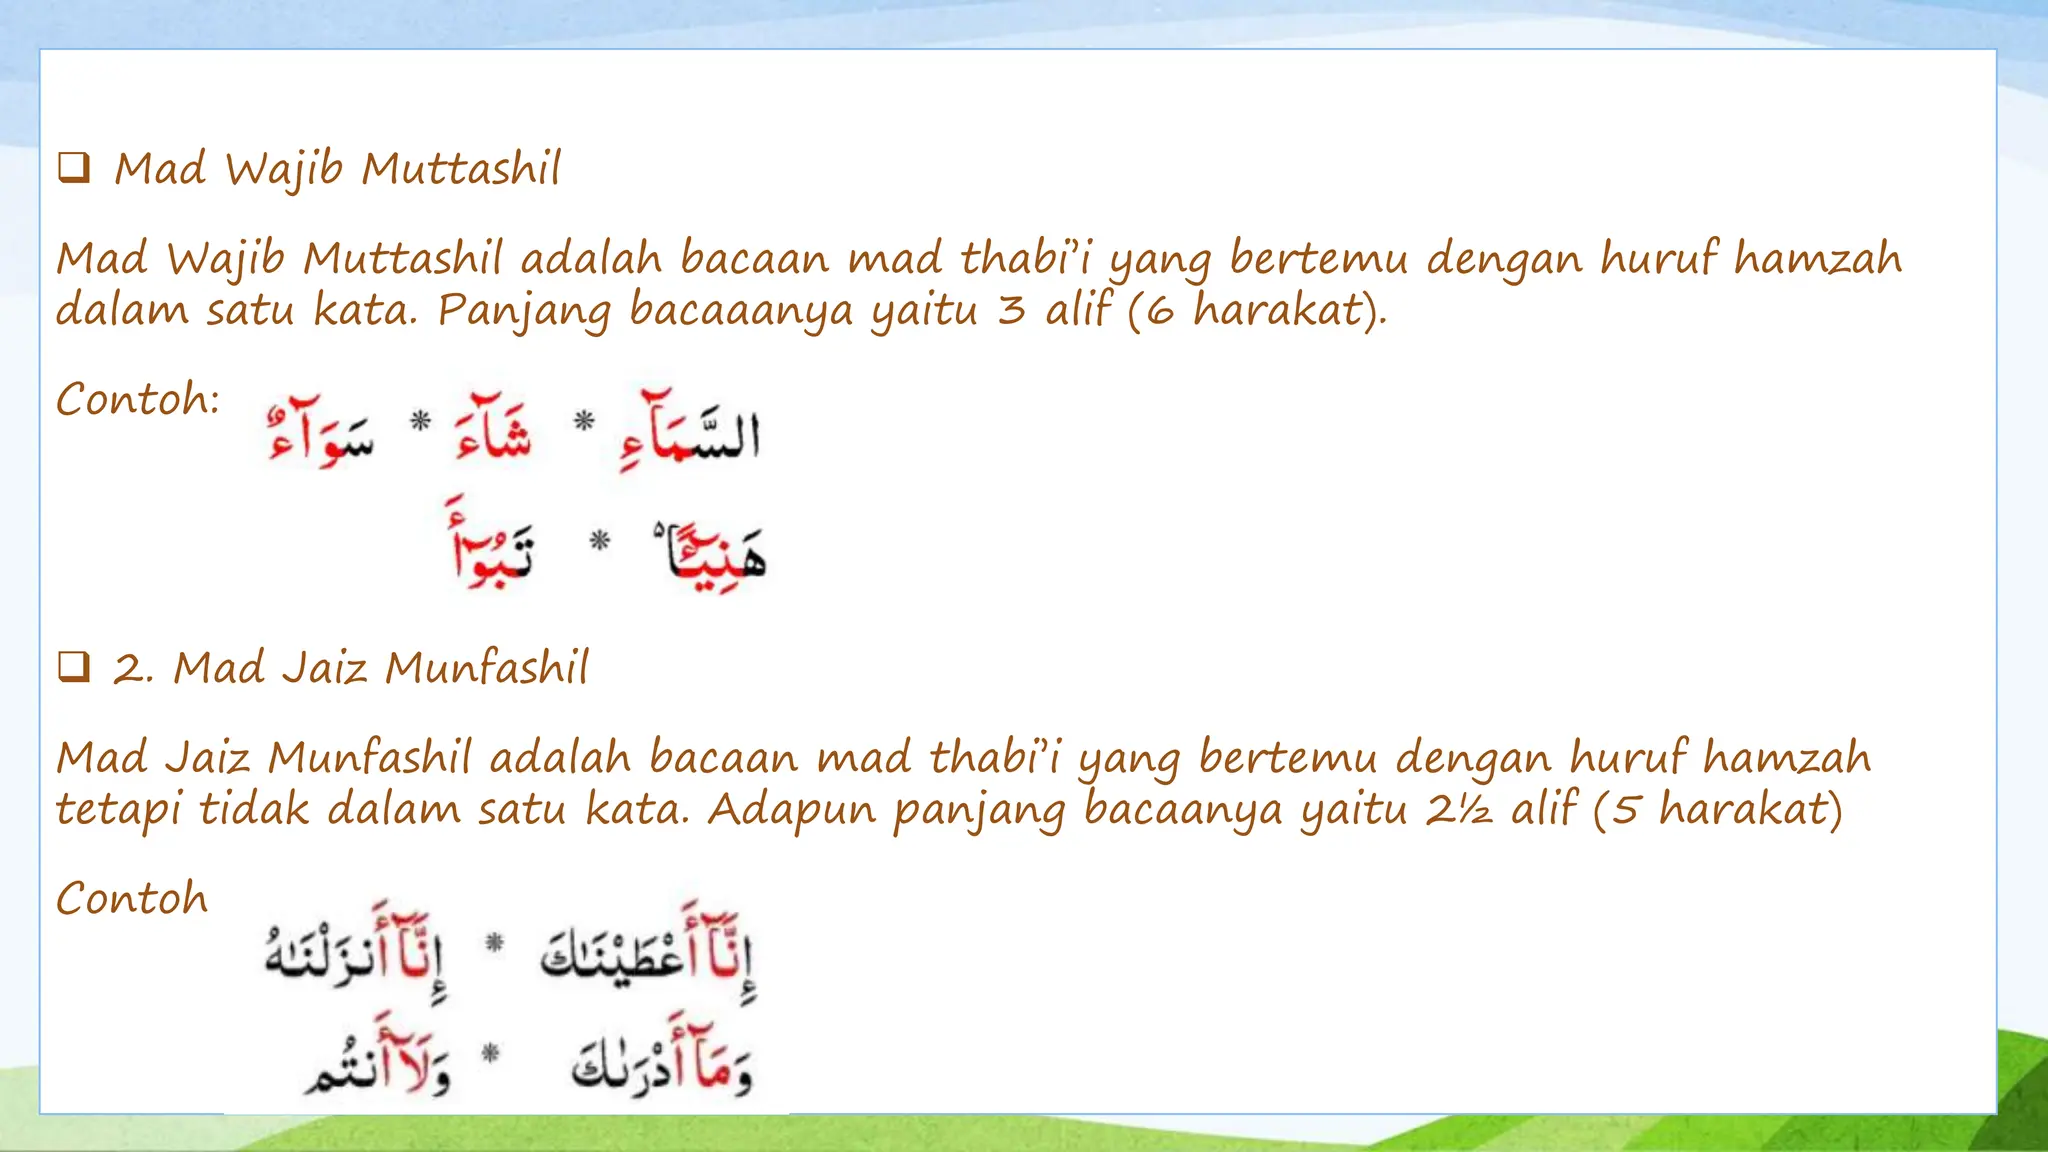 ❑ Mad Wajib Muttashil
Mad Wajib Muttashil adalah bacaan mad thabi’i yang bertemu dengan huruf hamzah
dalam satu kata. Panjang bacaaanya yaitu 3 alif (6 harakat).
Contoh:
السَّمَآءِ * شَآءَ * سَوَآءٌ
هَنِيٓـًٔا ۟ * تَبُوٓأَ
❑ 2. Mad Jaiz Munfashil
Mad Jaiz Munfashil adalah bacaan mad thabi’i yang bertemu dengan huruf hamzah
tetapi tidak dalam satu kata. Adapun panjang bacaanya yaitu 2½ alif (5 harakat)
Contoh
إِنَّآ أَعْطَيْنَٰكَ * إِنَّآ أَنزَلْنَٰهُ
وَمَآ أَدْرَىٰكَ * وَلَآ أَنتُم